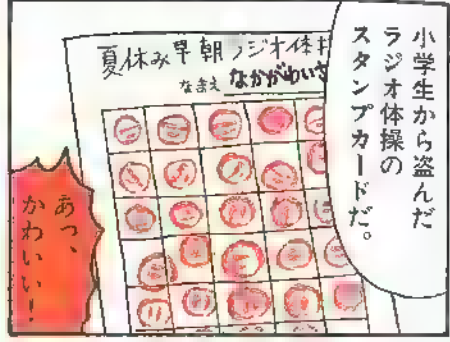 小学生から盗んだ
ラジオ体操の
スタンプカードだ。
夏休み早朝ラジオ体
なまえ なかがわい
あっ、
かわいい！